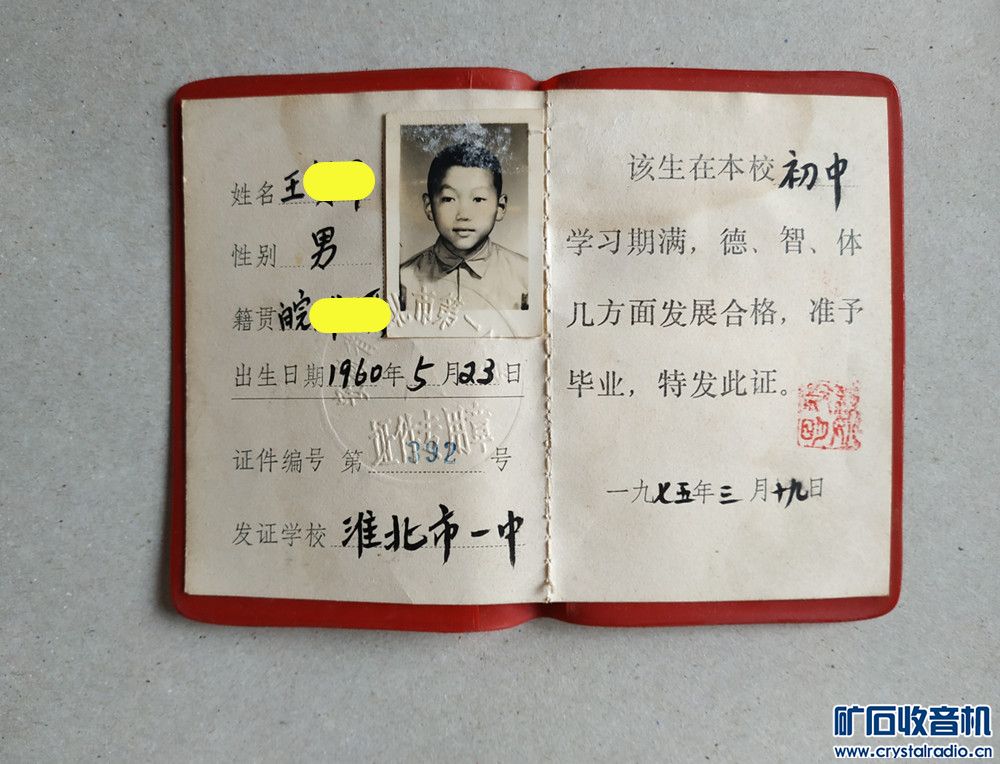 姓名 王
性别 男
籍贯 皖
出生日期 1960年 5 月 23 日
证件编号 第 392 号
发证学校 淮北市一中
市第一
证件专用章
该生在本校 初中
学习期满，德、智、体
几方面发展合格，准予
毕业，特发此证。
一九七五年三月十九日
矿石收音机
www.crystalradio.cn